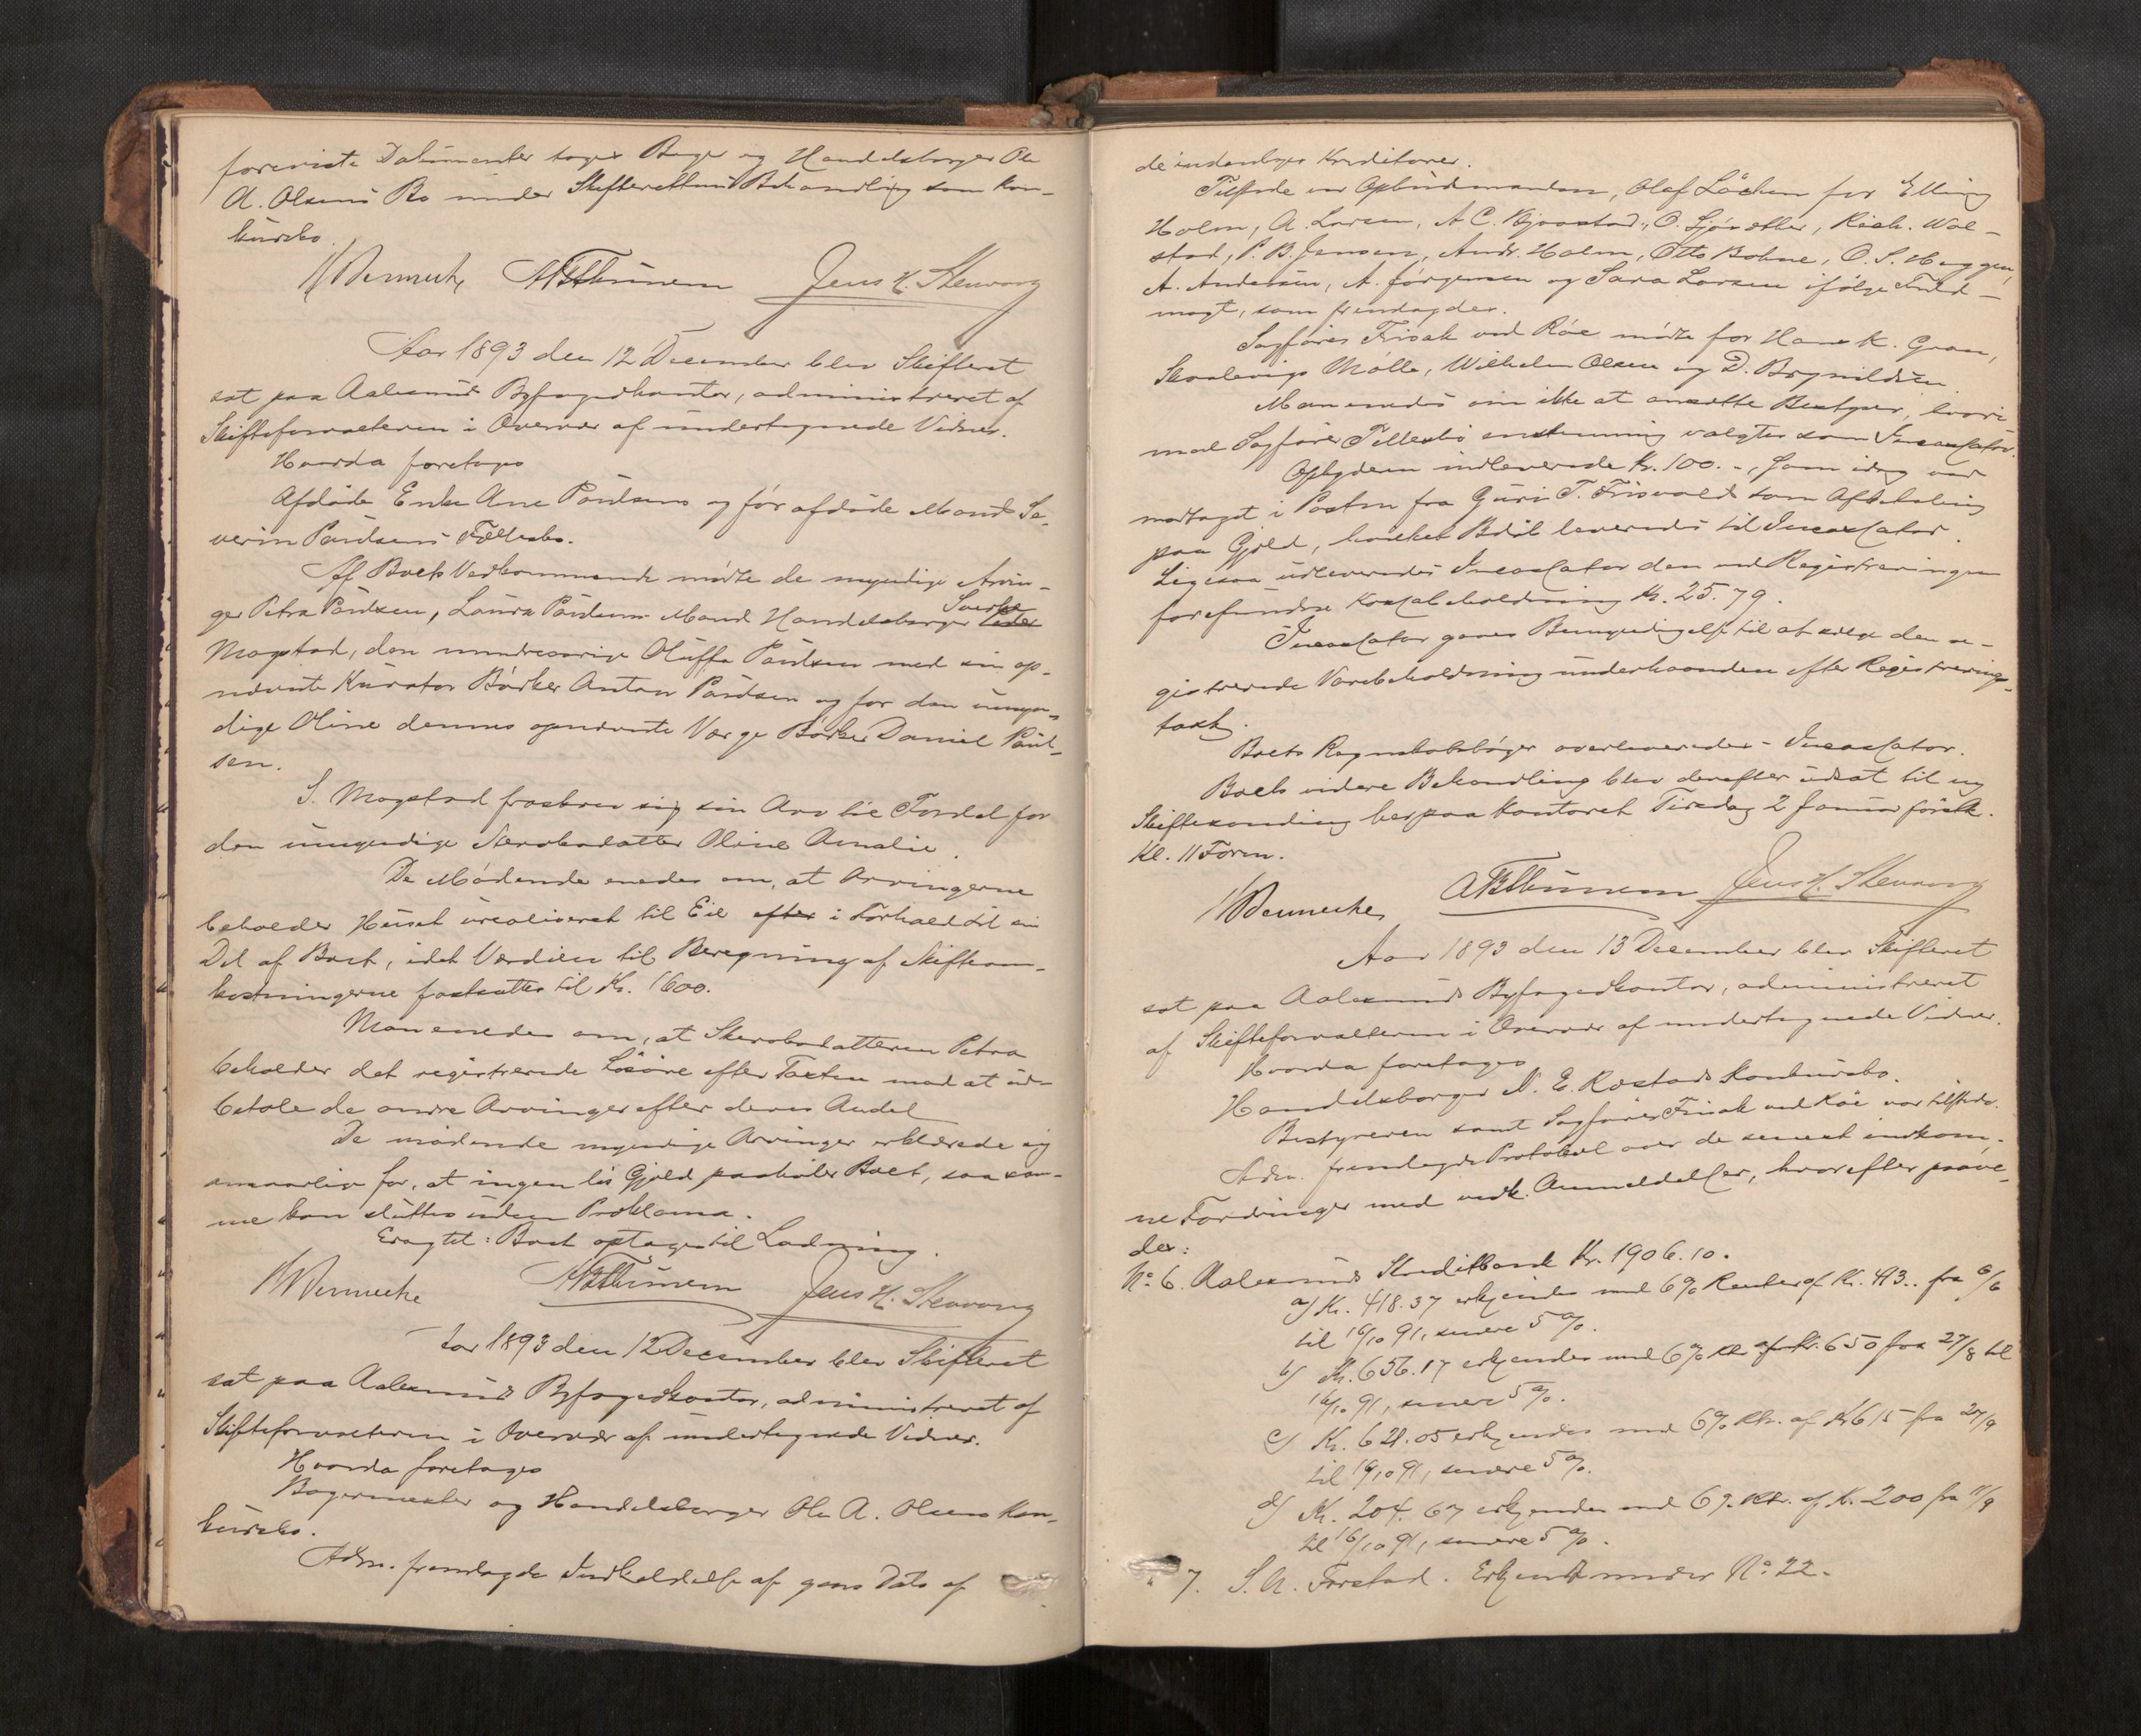 foreviste Dokumenter toges Bager og Handelsborger Ole
A. Olsens Bo under Skifterettens Behandling som kon-
kursbo.
Wennecke ABThunem Jens H. Stenvong
Aar 1893 den 12 December blev Skifteret
sat paa Aalesunds Byfogedkontor, administreret af
Skifteforvalteren i Overvær af undertegnede Vidner.
Hvorda foretoges
Afdøde Enke Ane Poulsens og før afdøde Mand Se-
verin Poulsens Fællesbo.
Af Boets Vedkommende mødte de myndige Arvin-
ger Petra Poulsen, Laura Poulsens Mand Handelsborger Sverke
Mogstad, den mindreaarige Oluffa Poulsen med sin op-
nævnte Kurator Bødker Anton Poulsen og for den umyn-
dige Oline dennes opnævnte Værge Bødker Daniel Poul-
sen.
S. Mogstad fraskrev sig sin Arv til Fordel for
den umyndige Sterbodatter Oline Amalie.
De Mødende enedes om, at Arvingerne
beholder Huset urealiseret til Eie efter i Forhold til sin
Del af Boet, idet Værdien til Beregning af Skifteom-
kostningerne fastsattes til Kr. 1600.
Man enedes om, at Sterbodatteren Petra
beholder det registrerede Løsøre efter Taxten mod at ud-
betale de andre Arvinger efter deres Andel
De mødende myndige Arvinger erklærede sig
ansvarlige for, at ingen løs Gjæld paahviler Boet, saa sam-
me kan sluttes uden Proklama.
Eragtet: Boet optages til Lodning.
Wennecke ABThunem Jens H. Stenvong
Aar 1893 den 12 December blev Skifteret
sat paa Aalesunds Byfogedkontor, administreret af
Skifteforvalteren i Overvær af undertegnede Vidner.
Hvorda foretoges
Bagermester og Handelsborger Ole A. Olsens Kon-
kursbo.
Adm. fremlagde Indkaldelse af gaars Dato af
de indenbyes Kreditorer.
Tilstede var Opbudsmanden, Olaf Løchen for Elling
Holm, A. Larsen, A C. Bjorstad, O. Sjørætter, Rich. Wol-
stad, P. B. Jensen, Andr. Holm, Otto Bohne, O. S. Haggen,
A. Andersen, A. Jørgensen og Sara Larsen ifølge Fuld-
magt, som fremlagdes.
Sagfører Frisak ved Röe mødte for Hans K. Gran,
Skodvigs Mølle, Wilhelm Olsen og D. Brynildsen.
Man enedes om ikke at ansætte Bestyrer, hvori-
mod Sagfører Tillesbø enstemmig valgtes som Incassator.
Opbyderen indleverede Kr. 100.-, som idag var
modtaget i Posten fra Guri T. Frisvold som Afbetaling
paa Gjæld, hvilket Beløb leveredes til Incassator.
Ligesaa udleveredes Incassator den ved Registreringen
forefundne Kassabeholdning Kr. 25.79.
Incassator gaves Bemyndigelse til at sælge den re-
gistrerede Varebeholdning underhaanden efter Registrerings-
taxt.
Boets Regnskabsbøger overleveredes Incassator.
Boets videre Behandling blev derefter udsat til ny
Skiftesamling her paa Kontoret Tirsdag 2 Januar førstk.
Kl. 11 Form.
Wennecke ABThunem Jens H. Stenvong
Aar 1893 den 13 December blev Skifteret
sat paa Aalesunds Byfogedkontor, administreret
af Skifteforvalteren i Overvær af undertegnede Vidner.
Hvorda foretoges
Handelsborger N. E. Rostads Konkursbo.
Bestyreren samt Sagfører Frisak ved Röe var tilstede.
Adm. fremlagde Protokol over de senest indkom-
ne Fordringer med vedk. Anmeldelser, hvorefter prøve-
des:
No. 6. Aalesunds Kreditbank Kr. 1906.10.
a) Kr. 418.37 erkjendes med 6% Renter af Kr. 413.. fra 6/6
til 16/10 91, senere 5%.
b) Kr. 656.17 erkjendes med 6% Rtr. af Kr. 650 fra 27/8 til
16/10 91, senere 5%.
c) Kr. 621.05 erkjendes med 6% Rtr. af Kr 615 fra 27/9
til 16/10 91, senere 5%.
d) Kr. 204.67 erkjendes med 6% Rtr. af Kr. 200 fra 11/9
til 16/10 91, senere 5%.
7. S. A. Forstad. Erkjendt under No. 22.